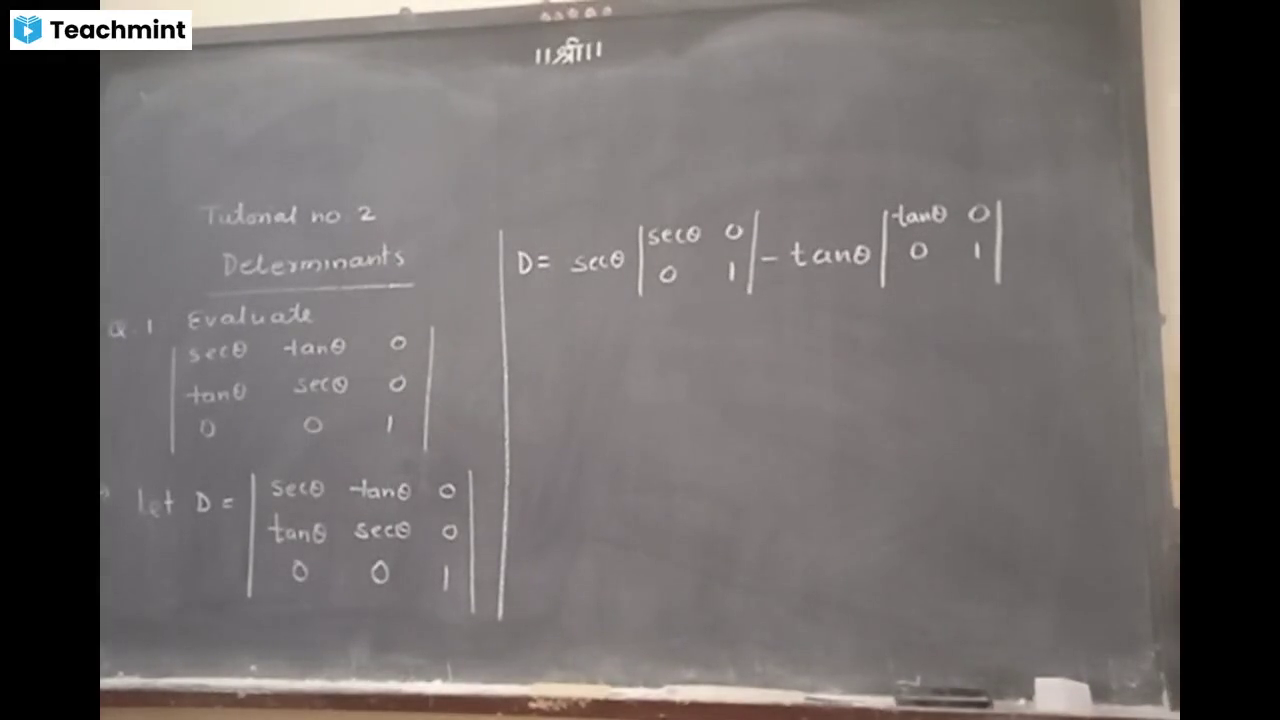 Teachmint
॥श्री॥
Tutorial no 2
Determinants
Q.1 Evaluate
| secθ tanθ 0 |
| tanθ secθ 0 |
| 0 0 1 |
let D = | secθ tanθ 0 |
| tanθ secθ 0 |
| 0 0 1 |
D = secθ | secθ 0 | - tanθ | tanθ 0 |
| 0 1 | | 0 1 |